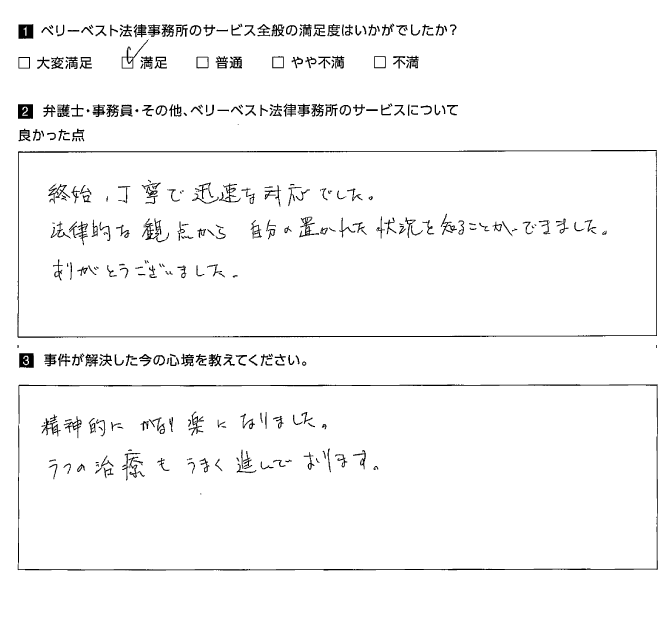 1 ベリーベスト法律事務所のサービス全般の満足度はいかがでしたか？
□ 大変満足 ☑ 満足 □ 普通 □ やや不満 □ 不満
2 弁護士・事務員・その他、ベリーベスト法律事務所のサービスについて
良かった点
終始、丁寧で迅速な対応でした。
法律的な観点から自分の置かれた状況を知ることができました。
ありがとうございました。
3 事件が解決した今の心境を教えてください。
精神的にかなり楽になりました。
うつの治療もうまく進んでおります。